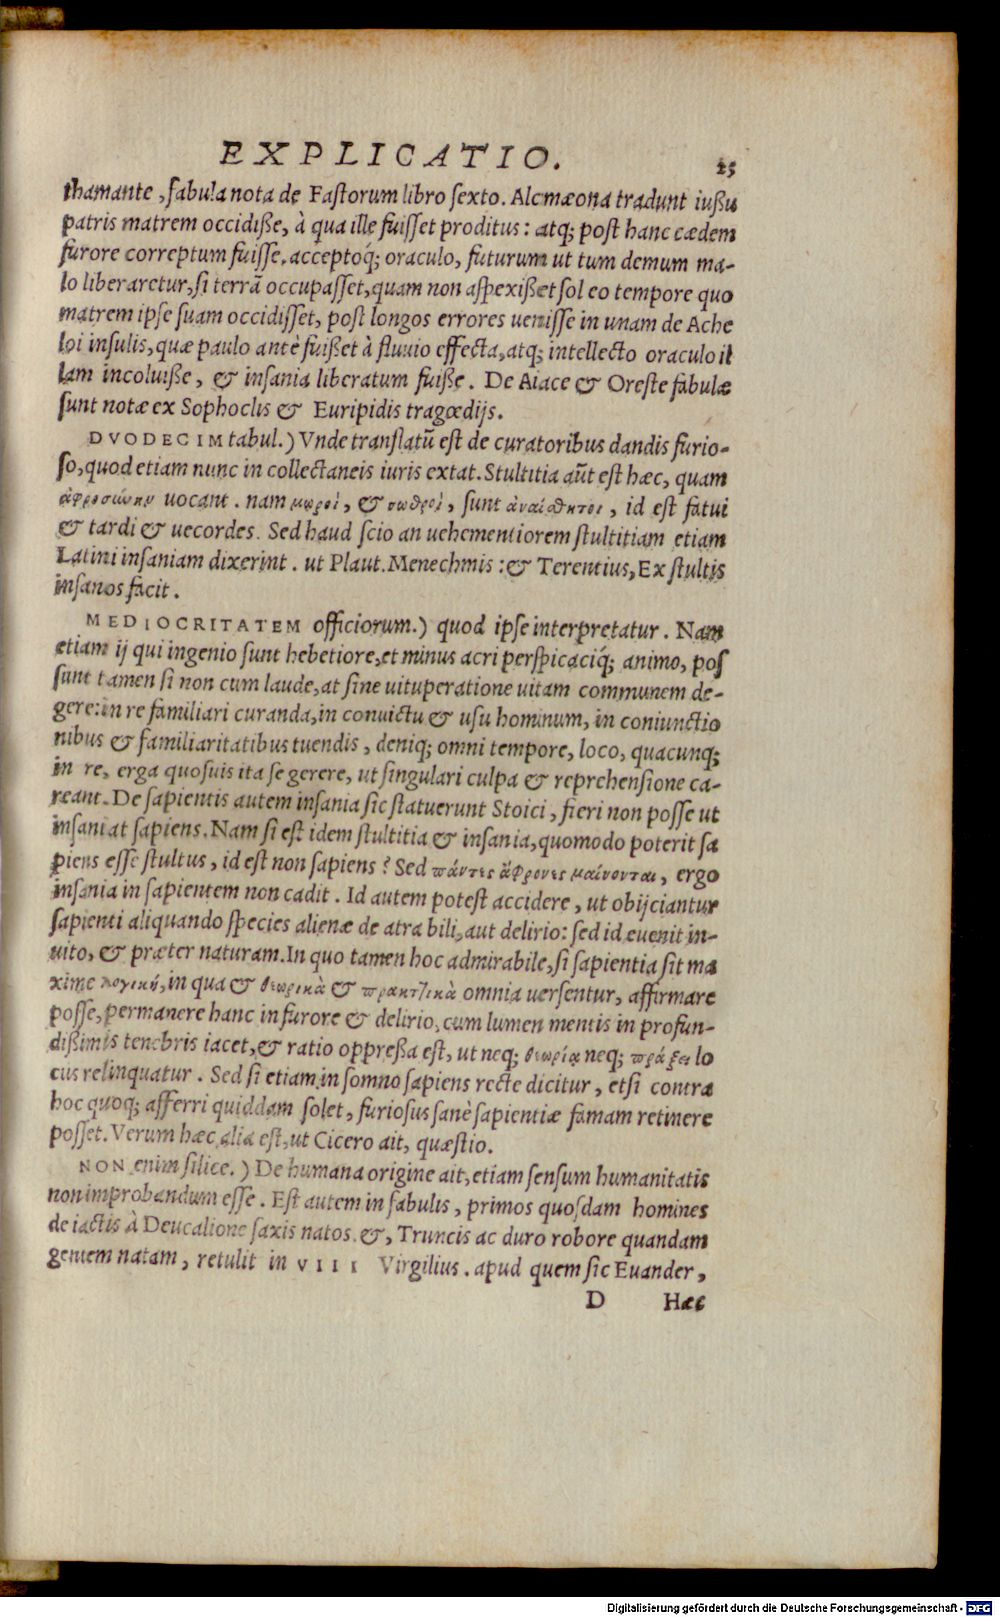 EXPLICATIO. 25
thamante, fabula nota de Fastorum libro sexto. Alcmæona tradunt iußu
patris matrem occidiße, à qua ille fuisset proditus: atq; post hanc cædem
furore correptum fuisse, acceptoq́; oraculo, futurum ut tum demum ma-
lo liberaretur, si terrā occupasset, quam non aspexißet sol eo tempore quo
matrem ipse suam occidisset, post longos errores uenisse in unam de Ache
loi insulis, quæ paulo antè fuißet à fluuio effecta, atq; intellecto oraculo il
lam incoluiße, & insania liberatum fuiße. De Aiace & Oreste fabulæ
sunt notæ ex Sophoclis & Euripidis tragœdijs.
DVODECIM tabul.) Vnde translatū est de curatoribus dandis furio-
so, quod etiam nunc in collectaneis iuris extat. Stultitia aūt est hæc, quam
ἀφροσύνην uocant. nam μωροὶ, & σωθροὶ, sunt ἀναίσθητοι, id est fatui
& tardi & uecordes. Sed haud scio an uehementiorem stultitiam etiam
Latini insaniam dixerint. ut Plaut. Menechmis: & Terentius, Ex stultis
insanos facit.
MEDIOCRITATEM officiorum.) quod ipse interpretatur. Nam
etiam ij qui ingenio sunt hebetiore, et minus acri perspicaciq́; animo, pos
sunt tamen si non cum laude, at sine uituperatione uitam communem de-
gere: in re familiari curanda, in conuictu & usu hominum, in coniunctio
nibus & familiaritatibus tuendis, deniq; omni tempore, loco, quacunq;
in re, erga quosuis ita se gerere, ut singulari culpa & reprehensione ca-
reant. De sapientis autem insania sic statuerunt Stoici, fieri non posse ut
insaniat sapiens. Nam si est idem stultitia & insania, quomodo poterit sa
piens esse stultus, id est non sapiens? Sed πάντες ἄφρονες μαίνονται, ergo
insania in sapientem non cadit. Id autem potest accidere, ut obijciantur
sapienti aliquando species alienæ de atra bili, aut delirio: sed id euenit in-
uito, & præter naturam. In quo tamen hoc admirabile, si sapientia sit ma
xime λογικὴ, in qua & θεωρικὰ & πρακτικὰ omnia uersentur, affirmare
posse, permanere hanc in furore & delirio, cum lumen mentis in profun-
dißimis tenebris iacet, & ratio oppreßa est, ut neq; θεωρίᾳ neq; πράξει lo
cus relinquatur. Sed si etiam in somno sapiens recte dicitur, etsi contra
hoc quoq; afferri quiddam solet, furiosus sanè sapientiæ famam retinere
posset. Verum hæc alia est, ut Cicero ait, quæstio.
NON enim silice.) De humana origine ait, etiam sensum humanitatis
non improbandum esse. Est autem in fabulis, primos quosdam homines
de iactis à Deucalione saxis natos. &, Truncis ac duro robore quandam
gentem natam, retulit in VIII Virgilius. apud quem sic Euander,
D Hæc
Digitalisierung gefördert durch die Deutsche Forschungsgemeinschaft - DFG